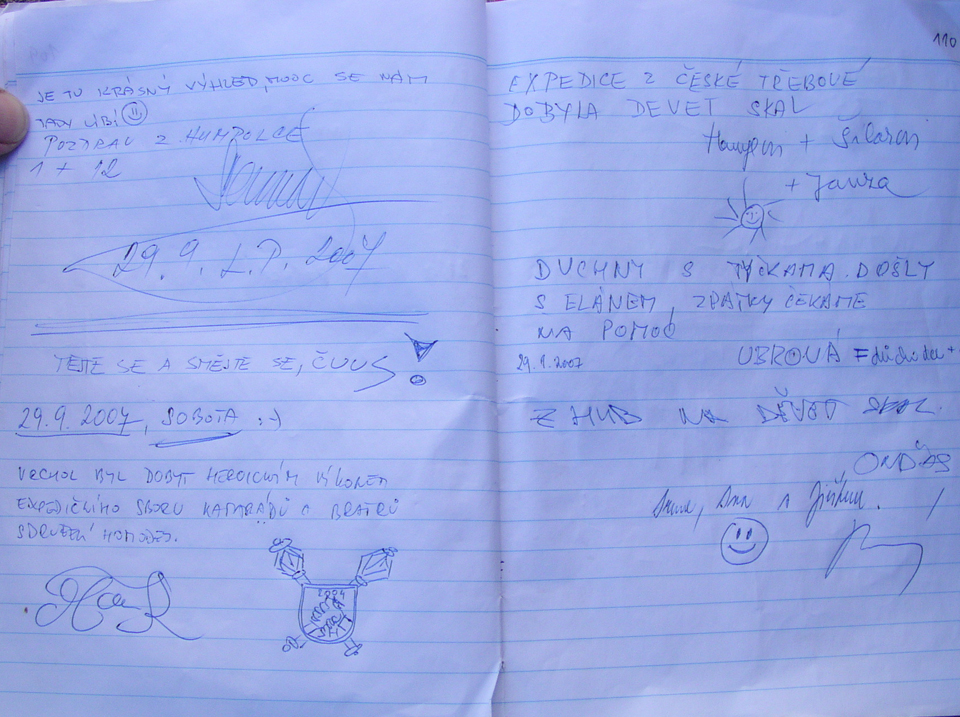 JE TU KRÁSNÝ VÝHLED, MOOC SE NÁM
TADY LÍBÍ
POZDRAV Z HUMPOLCE
1 + 12
29. 9. L.P. 2007
TĚŠTE SE A SMĚJTE SE, ČUUS!
29.9.2007, SOBOTA :-)
VRCHOL BYL DOBYT HEROICKÝM VÝKONEM
EXPEDIČNÍHO SBORU KAMARÁDŮ A BRATRŮ
SDRUŽENÍ
2004
110
EXPEDICE Z ČESKÉ TŘEBOVÉ
DOBYLA DEVET SKAL
+
+ Janza
DUCHNY S TYČKAMA DOŠLY
S ELÁNEM, ZPÁTKY ČEKÁME
NA POMOC
29.9.2007 UBROVÁ =
Z HUB NA DĚVĚT SKAL
ONDŘAS